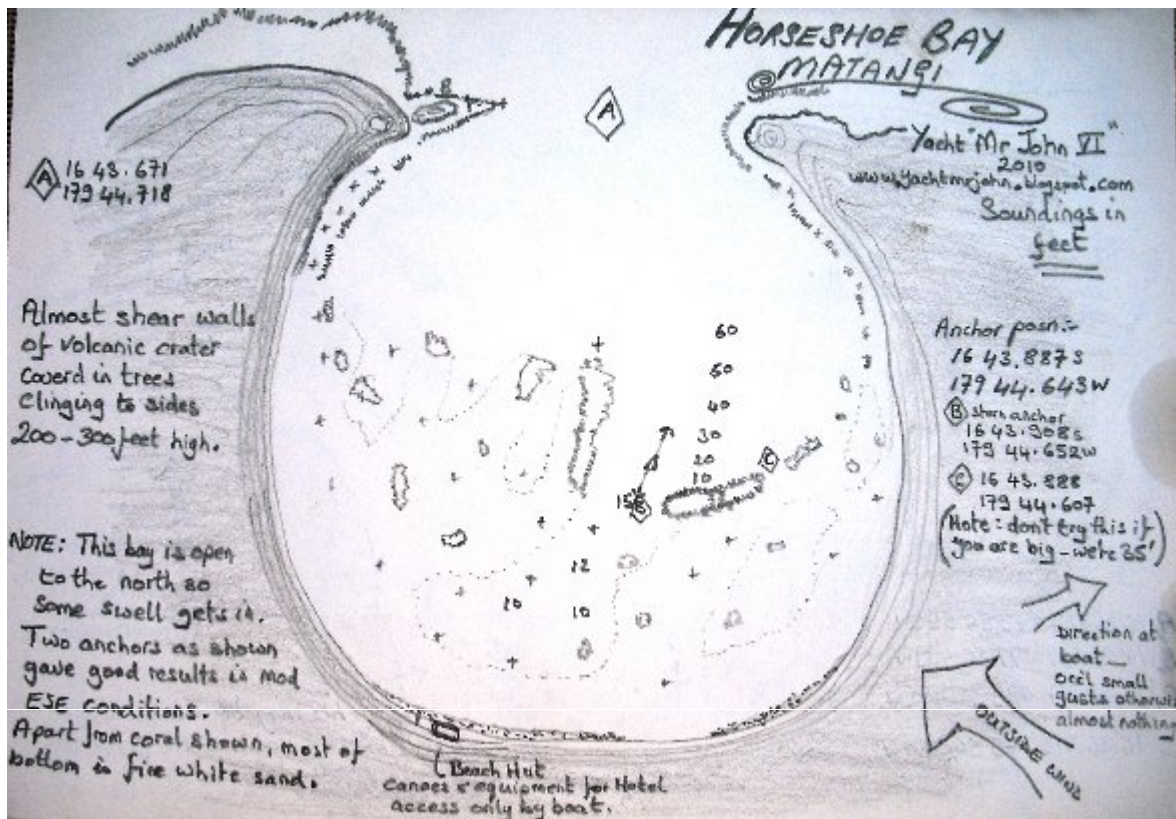 HORSESHOE BAY
MATANGI
Yacht "Mr John VI"
2010
www.yachtmrjohn.blogspot.com
Soundings in
feet
A
A 16 43.671
179 44.718
Almost shear walls
of volcanic crater
coverd in trees
clinging to sides
200-300 feet high.
NOTE: This bay is open
to the north so
some swell gets in.
Two anchors as shown
gave good results in mod
ESE conditions.
Apart from coral shown, most of
bottom is fine white sand.
60
50
40
30
20
10
C
15
B
12
10
10
Anchor posn:-
16 43.887S
179 44.643W
B stern anchor
16 43.908S
179 44.652W
C 16 43.888
179 44.607
(Note: don't try this if
you are big - we're 35')
Direction at
boat
occ'l small
gusts
almost nothing
OUTSIDE WIND
Beach Hut
canoes & equipment for Hotel
access only by boat.